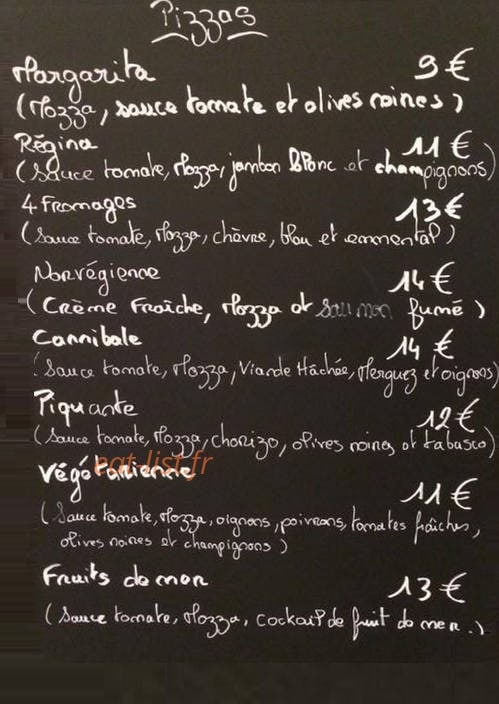 Pizzas
Margarita 9€
(Mozza, sauce tomate et olives noires)
Régina 11€
(Sauce tomate, Mozza, jambon Blanc et champignons)
4 Fromages 13€
(Sauce tomate, Mozza, chèvre, bleu et emmental)
Norvégienne 14€
(Crème Fraîche, Mozza et saumon fumé)
Cannibale 14€
(Sauce tomate, Mozza, Viande Hâchée, Merguez et oignons)
Piquante 12€
(Sauce tomate, Mozza, chorizo, olives noires et tabasco)
Végétarienne
eat-list.fr
11€
(Sauce tomate, Mozza, oignons, poivrons, tomates fraîches,
olives noires et champignons)
Fruits de mer 13€
(Sauce tomate, Mozza, cocktail de fruit de mer.)